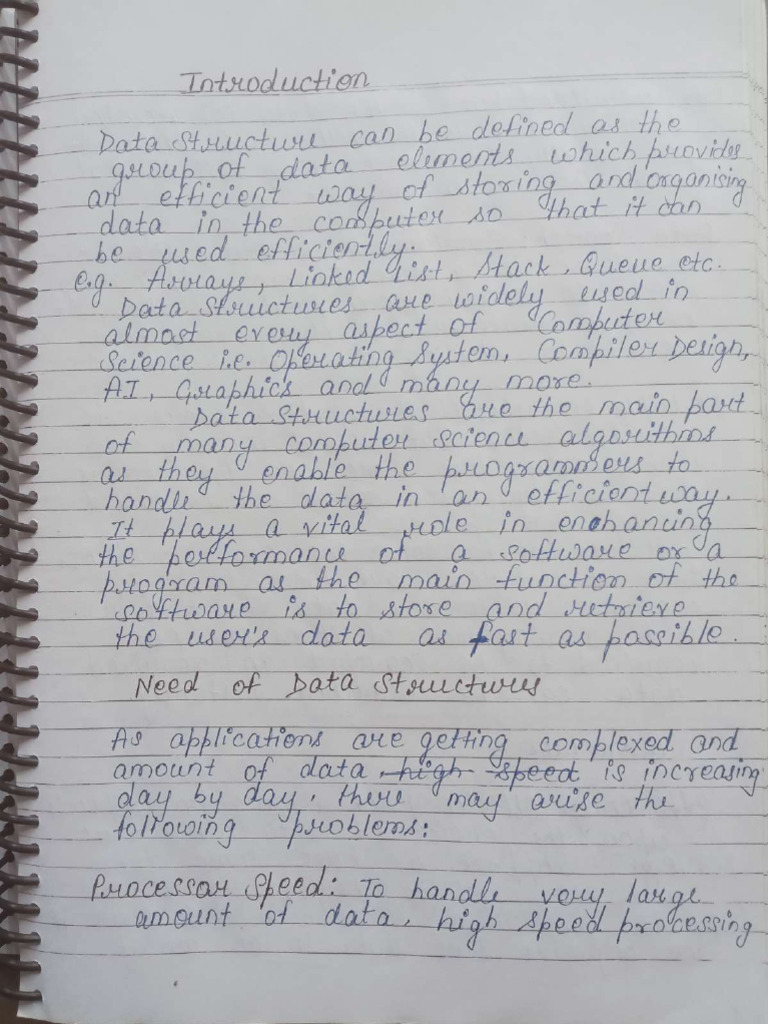 Introduction
Data Structure can be defined as the
group of data elements which provides
an efficient way of storing and organising
data in the computer so that it can
be used efficiently.
e.g. Arrays, Linked List, Stack, Queue etc.
Data Structures are widely used in
almost every aspect of Computer
Science i.e. Operating System, Compiler Design,
AI, Graphics and many more.
Data Structures are the main part
of many computer science algorithms
as they enable the programmers to
handle the data in an efficient way.
It plays a vital role in enchancing
the performance of a software or a
program as the main function of the
software is to store and retrieve
the user's data as fast as possible.
Need of Data Structures
As applications are getting complexed and
amount of data high speed is increasing
day by day, there may arise the
following problems:
Processor Speed: To handle very large
amount of data, high speed processing